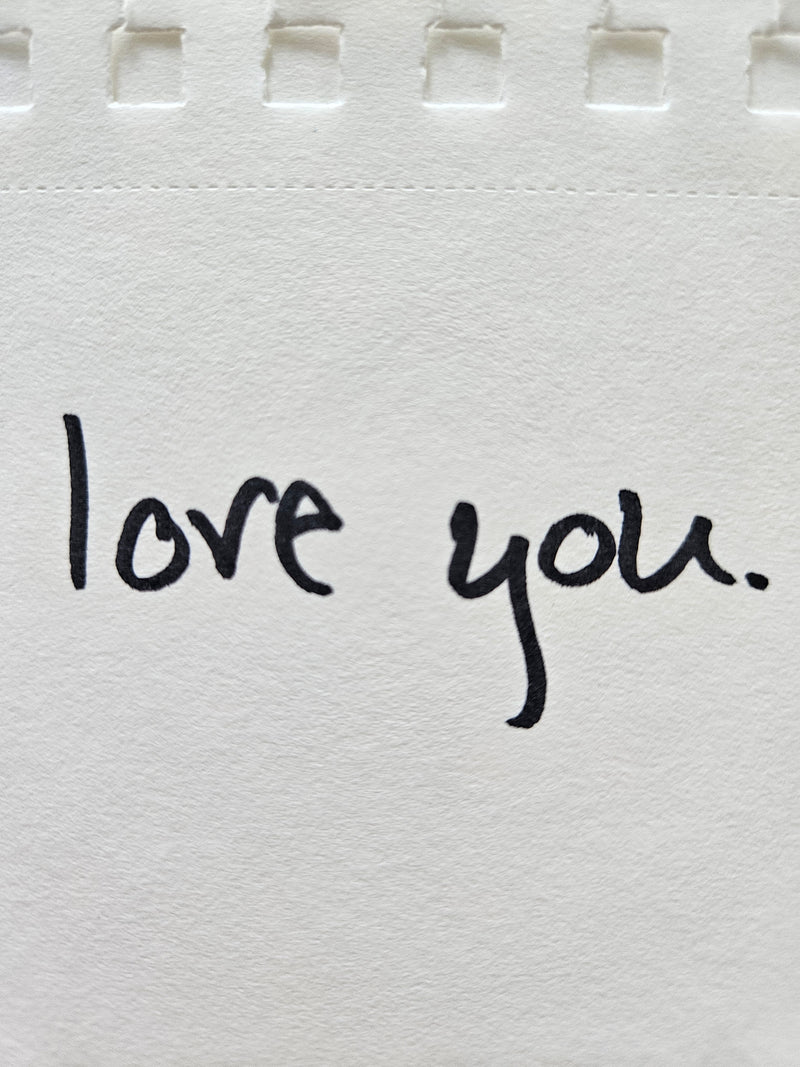 love you.